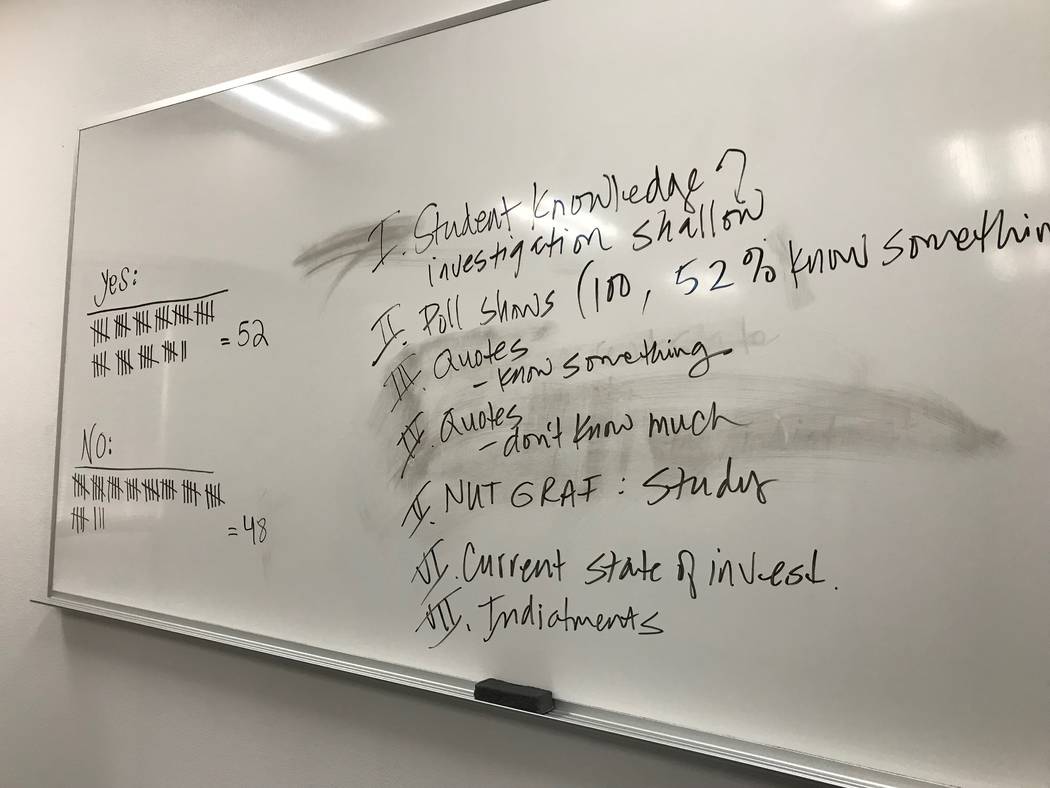 Yes:
= 52
No:
= 48
I. Student Knowledge?
investigation shallow
II. Poll shows (100, 52% know somethin
III. Quotes
- know something
IV. Quotes
- don't know much
V. NUT GRAF: Study
VI. Current state of invest.
VII. Indictments